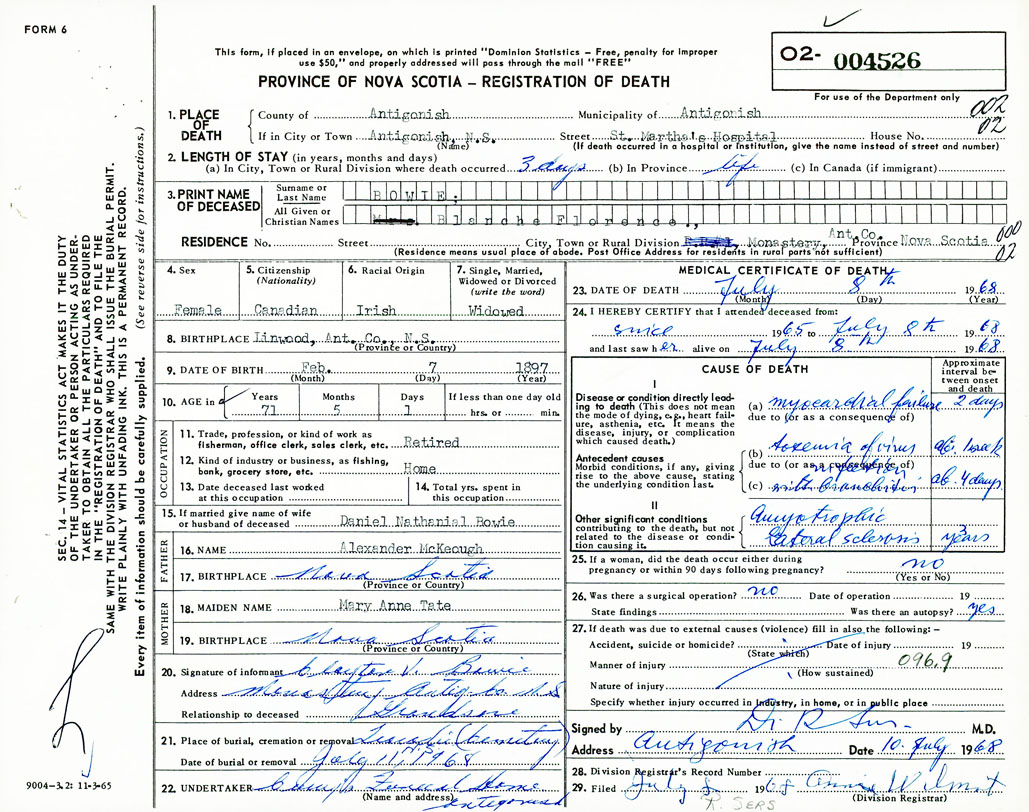 FORM 6
This form, if placed in an envelope, on which is printed "Dominion Statistics – Free, penalty for improper
use $50," and properly addressed will pass through the mail "FREE"
PROVINCE OF NOVA SCOTIA – REGISTRATION OF DEATH
O2- 004526
For use of the Department only
002
02
1. PLACE OF DEATH
County of Antigonish Municipality of Antigonish
If in City or Town Antigonish, N.S. Street St. Martha's Hospital House No.
(Name) (If death occurred in a hospital or institution, give the name instead of street and number)
2. LENGTH OF STAY (in years, months and days)
(a) In City, Town or Rural Division where death occurred 3 days (b) In Province life (c) In Canada (if immigrant)
3. PRINT NAME OF DECEASED
Surname or Last Name BOWIE;
All Given or Christian Names Mrs. Blanche Florence.,
RESIDENCE No. Street City, Town or Rural Division Monastery, Ant.Co. Province Nova Scotia
000
02
(Residence means usual place of abode. Post Office Address for residents in rural parts not sufficient)
4. Sex
Female
5. Citizenship
(Nationality)
Canadian
6. Racial Origin
Irish
7. Single, Married,
Widowed or Divorced
(write the word)
Widowed
8. BIRTHPLACE Linwood, Ant. Co., N.S.
(Province or Country)
9. DATE OF BIRTH Feb. 7 1897
(Month) (Day) (Year)
10. AGE in
Years Months Days If less than one day old
71 5 1 hrs. or min.
OCCUPATION
11. Trade, profession, or kind of work as
fisherman, office clerk, sales clerk, etc. Retired
12. Kind of industry or business, as fishing,
bank, grocery store, etc. Home
13. Date deceased last worked
at this occupation
14. Total yrs. spent in
this occupation
15. If married give name of wife
or husband of deceased Daniel Nathanial Bowie
FATHER
16. NAME Alexander McKeough
17. BIRTHPLACE Nova Scotia
(Province or Country)
MOTHER
18. MAIDEN NAME Mary Anne Tate
19. BIRTHPLACE Nova Scotia
(Province or Country)
20. Signature of informant Clayton V. Bowie
Address Monastery Antig. Co N.S
Relationship to deceased Grandson
21. Place of burial, cremation or removal Tracadie Cemetery
Date of burial or removal July 11, 1968
22. UNDERTAKER Funeral Home
(Name and address) Antigonish
MEDICAL CERTIFICATE OF DEATH
23. DATE OF DEATH July 8th 1968
(Month) (Day) (Year)
24. I HEREBY CERTIFY that I attended deceased from:
since 1965 to July 8th 1968
and last saw her alive on July 8th 1968
CAUSE OF DEATH
Approximate
interval be-
tween onset
and death
I
Disease or condition directly lead-
ing to death (This does not mean
the mode of dying, e.g., heart fail-
ure, asthenia, etc. It means the
disease, injury, or complication
which caused death.)
(a) myocardial failure 2 days
due to (or as a consequence of)
Antecedent causes
Morbid conditions, if any, giving
rise to the above cause, stating
the underlying condition last.
(b) toxemia of virus ab. 1 week
due to (or as a consequence of)
infection
(c) with bronchitis ab. 4 days
II
Other significant conditions
contributing to the death, but not
related to the disease or condi-
tion causing it.
Amyotrophic
Lateral sclerosis 3 years
25. If a woman, did the death occur either during
pregnancy or within 90 days following pregnancy? no
(Yes or No)
26. Was there a surgical operation? no Date of operation 19
State findings Was there an autopsy? yes
27. If death was due to external causes (violence) fill in also the following: –
Accident, suicide or homicide? Date of injury 19
(State which)
Manner of injury 096.9
(How sustained)
Nature of injury
Specify whether injury occurred in industry, in home, or in public place
Signed by Dr. R M.D.
Address Antigonish Date 10. July 1968
28. Division Registrar's Record Number
29. Filed July 1968 Wilmot
(Division Registrar)
R. SERS
SEC. 14 – VITAL STATISTICS ACT MAKES IT THE DUTY
OF THE UNDERTAKER OR PERSON ACTING AS UNDER-
TAKER TO OBTAIN ALL THE PARTICULARS REQUIRED
IN THE "REGISTRATION OF DEATH" AND TO FILE THE
SAME WITH THE DIVISION REGISTRAR WHO SHALL ISSUE THE BURIAL PERMIT.
WRITE PLAINLY WITH UNFADING INK. THIS IS A PERMANENT RECORD.
Every item of information should be carefully supplied. (See reverse side for instructions.)
9004-3.2: 11-3-65